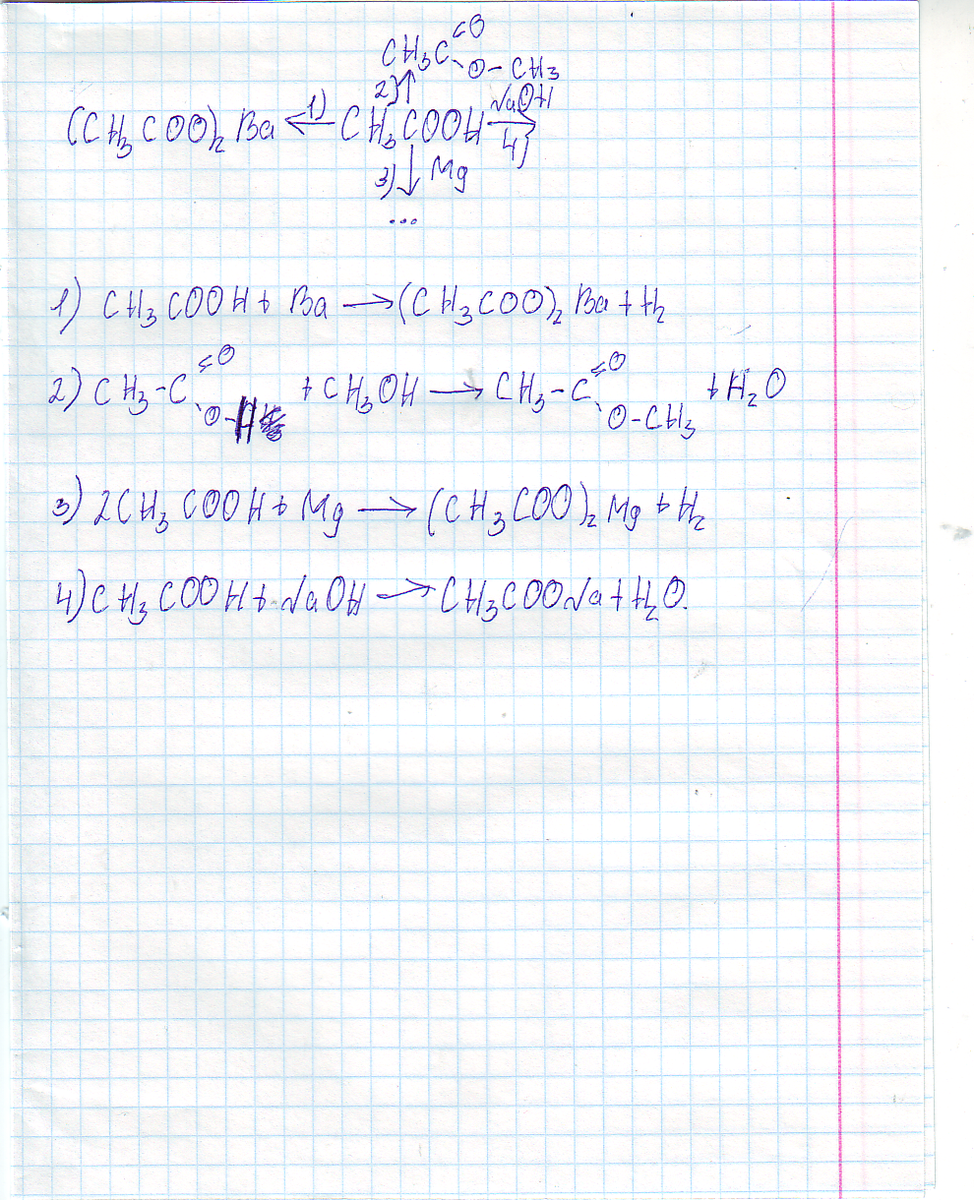 CH₃C =O
O-CH₃
2)↑
(CH₃COO)₂Ba ←1) CH₃COOH NaOH → 4)
3)↓ Mg
...
1) CH₃COOH + Ba → (CH₃COO)₂Ba + H₂
2) CH₃-C =O O-H + CH₃OH → CH₃-C =O O-CH₃ + H₂O
3) 2CH₃COOH + Mg → (CH₃COO)₂Mg + H₂
4) CH₃COOH + NaOH → CH₃COONa + H₂O.